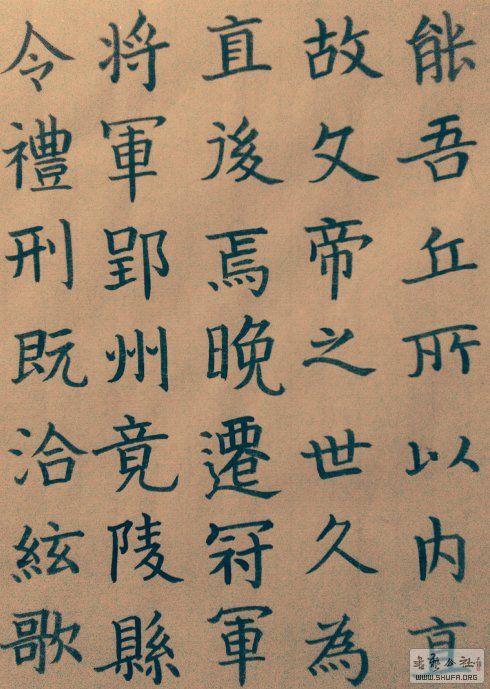 能吾丘所以内直
故文帝之世久為
直後焉晚遷冠軍
将軍郢州竟陵縣
令禮刑既洽絃歌
WWW.SHUFA.ORG